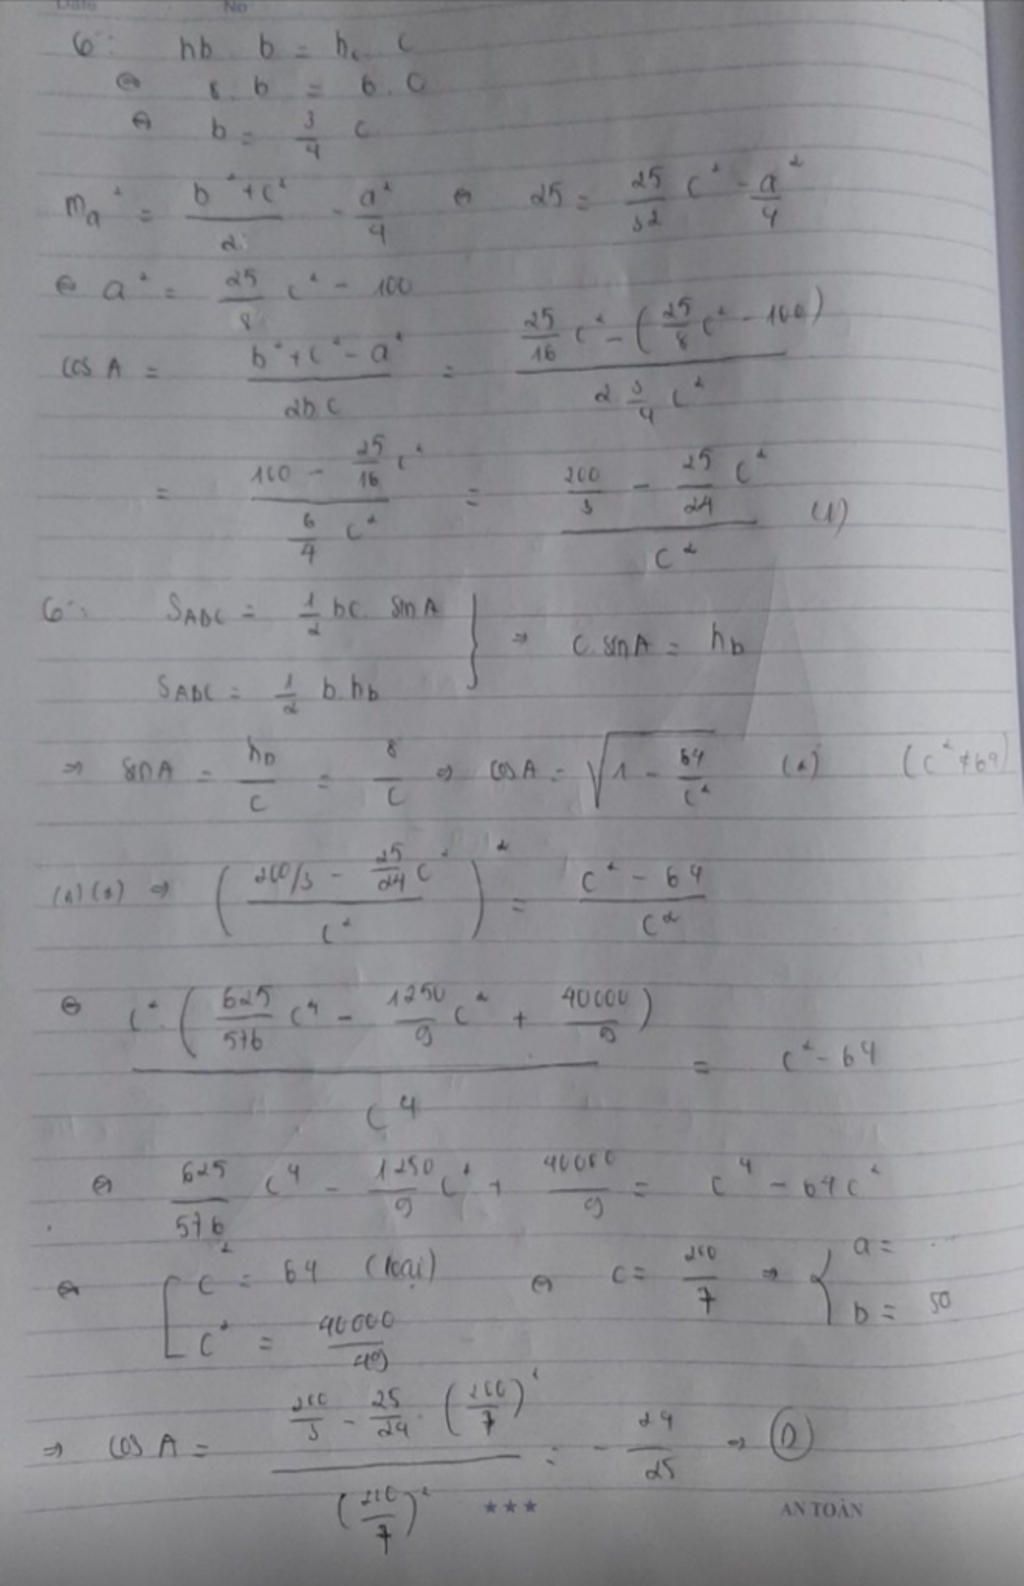 Date No
Có: hb . b = hc . c
⇔ 8 . b = 6 . c
⇔ b = 3/4 c
ma² = (b² + c²)/2 - a²/4 ⇔ 25 = 25/32 c² - a²/4
⇔ a² = 25/8 c² - 100
cos A = (b² + c² - a²)/(2bc) = (25/16 c² - (25/8 c² - 100))/(2 3/4 c²)
= (100 - 25/16 c²)/(6/4 c²) = (200/3 - 25/24 c²)/c² (1)
Có: SABC = 1/2 bc. sin A } ⇒ c. sin A = hb
SABC = 1/2 b. hb
⇒ sin A = hb/c = 8/c ⇒ cos A = √(1 - 64/c²) (2) (c² ≠ 64)
(1)(2) ⇒ ((200/3 - 25/24 c²)/c²)² = (c² - 64)/c²
⇔ c². (625/576 c⁴ - 1250/9 c² + 40000/9)/c⁴ = c² - 64
⇔ 625/576 c⁴ - 1250/9 c² + 40000/9 = c⁴ - 64c²
⇔ [ c² = 64 (loại) ⇔ c = 200/7 ⇒ { a = ...
c² = 40000/49 b = 50
⇒ cos A = (200/3 - 25/24 . (200/7)²)/(200/7)² = - 24/25 ⇒ (D)
★★★ AN TOÀN